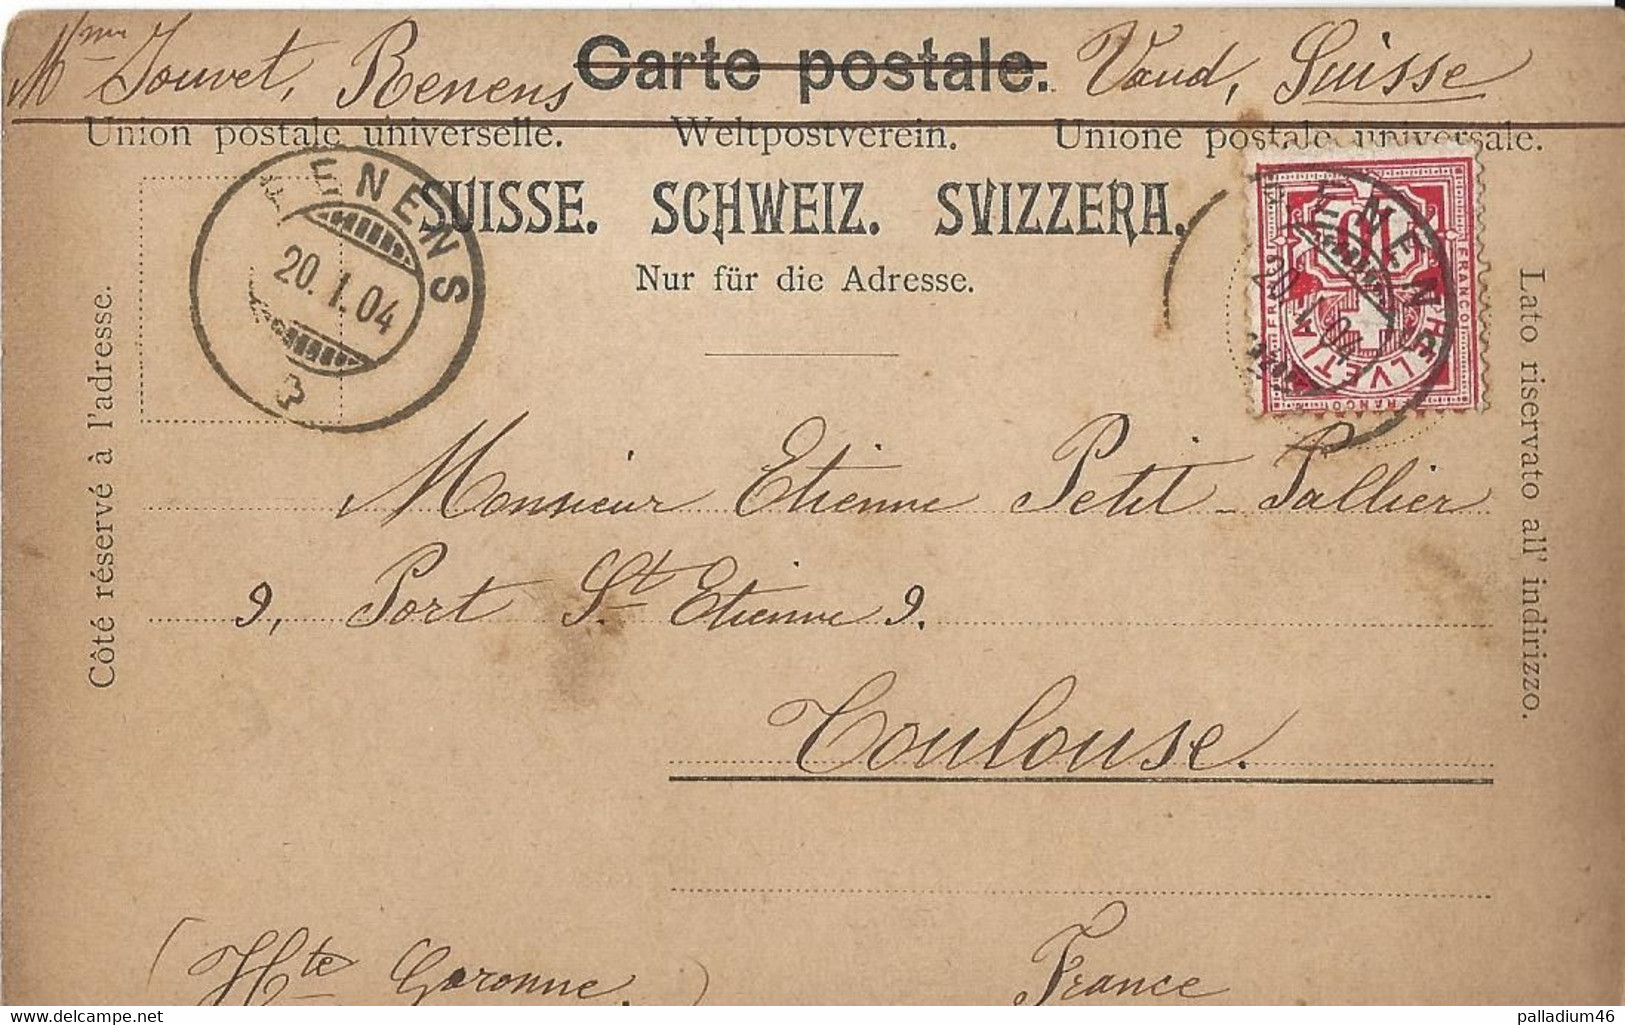 Mme Jouvet, Renens Carte postale. Vaud, Suisse
Union postale universelle. Weltpostverein. Unione postale universale.
SUISSE. SCHWEIZ. SVIZZERA.
Nur für die Adresse.
RENENS
20.1.04
3
RENENS
20.1.04
10
FRANCO
FRANCO
HELVETIA
FRANCO
Côté réservé à l'adresse.
Lato riservato all' indirizzo.
Monsieur Etienne Petit-Pallier
9, Port St Etienne 9.
Toulouse.
(Hte Garonne.) France
delcampe.net
palladium46